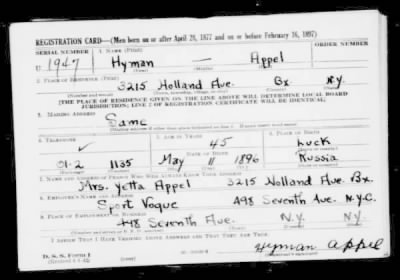 REGISTRATION CARD—(Men born on or after April 28, 1877 and on or before February 16, 1897)
SERIAL NUMBER 1. NAME (Print) ORDER NUMBER
U 1947 Hyman — Appel
(First) (Middle) (Last)
2. PLACE OF RESIDENCE (Print)
3215 Holland Ave. Bx. N.Y.
[THE PLACE OF RESIDENCE GIVEN ON THE LINE ABOVE WILL DETERMINE LOCAL BOARD
JURISDICTION; LINE 2 OF REGISTRATION CERTIFICATE WILL BE IDENTICAL]
3. MAILING ADDRESS
Same
4. TELEPHONE 5. AGE IN YEARS 6. PLACE OF BIRTH
45 Luck
DATE OF BIRTH
Ol-2 1135 May 11 1896 Russia
7. NAME AND ADDRESS OF PERSON WHO WILL ALWAYS KNOW YOUR ADDRESS
Mrs. Yetta Appel 3215 Holland Ave. Bx.
8. EMPLOYER'S NAME AND ADDRESS
Sport Vogue 498 Seventh Ave. N.Y.C.
9. PLACE OF EMPLOYMENT OR BUSINESS
498 Seventh Ave. N.Y. N.Y.
I AFFIRM THAT I HAVE VERIFIED ABOVE ANSWERS AND THAT THEY ARE TRUE.
D. S. S. Form 1 Hyman Appel